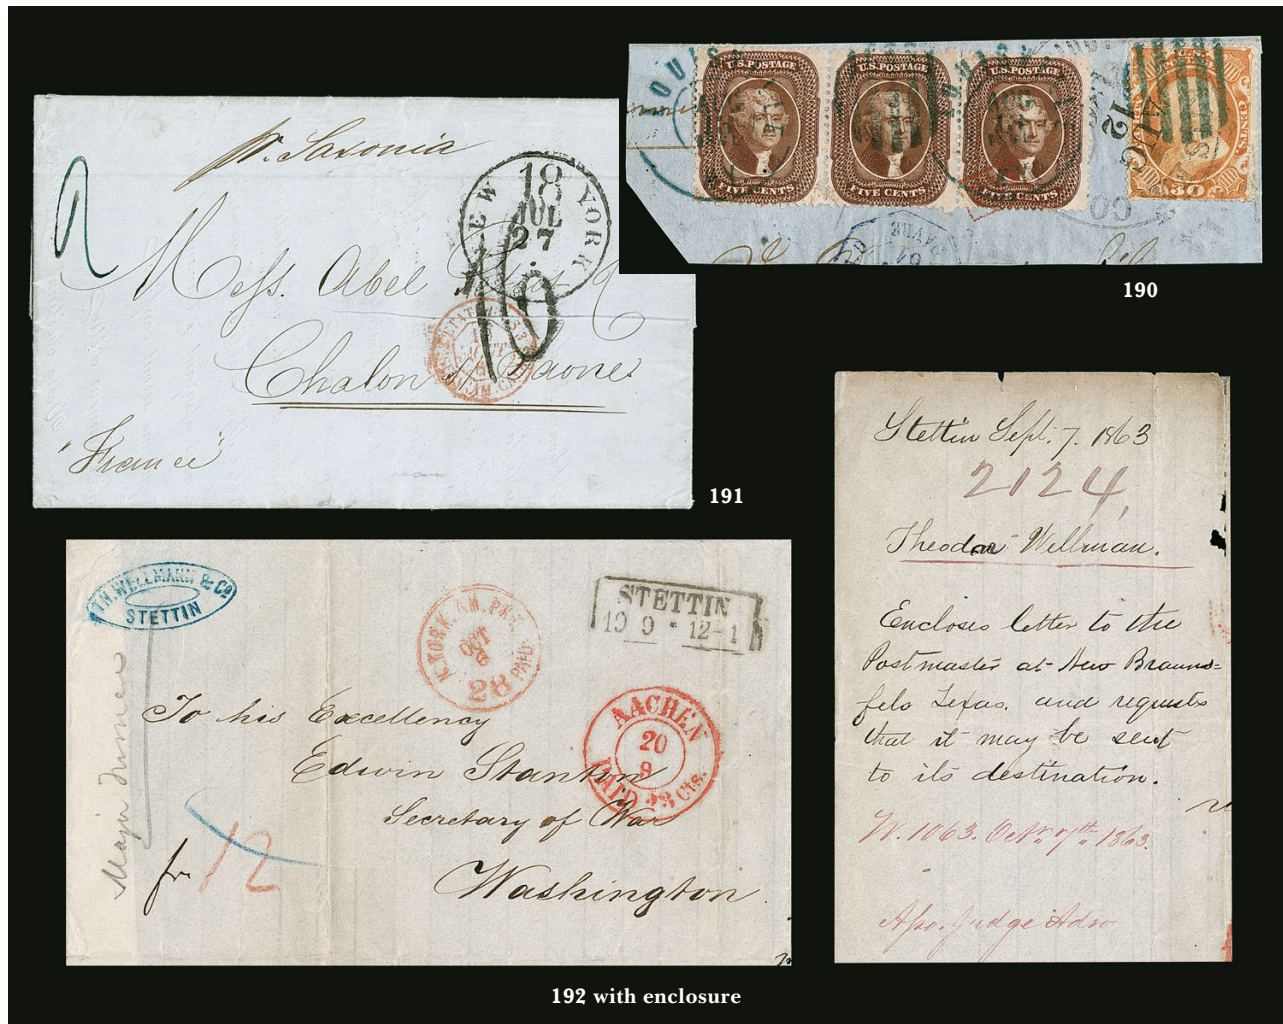 pr. Saxonia
NEW YORK
18
JUL
27
Mess. Abel
Chalon s/ Saones
"France"
10
191
U.S. POSTAGE
U.S. POSTAGE
U.S. POSTAGE
FIVE CENTS
FIVE CENTS
FIVE CENTS
30
CENTS
AUG
12
HAVRE
190
TH. WELLMANN & Co
STETTIN
N. YORK. AM. PKT.
OCT
6
28
PAID
STETTIN
10 9 * 12-1
AACHEN
20
9
PAID 28 Cts.
To his Excellency
Edwin Stanton
Secretary of War
Washington
fr. 12
Major Turner
192 with enclosure
Stettin Sept. 7. 1863
2124,
Theodor Wellman.
Encloses letter to the
Postmaster at New Brauns=
fels Texas. and requests
that it may be sent
to its destination.
W. 1063. Octr. 7th 1863.
Judge Adv